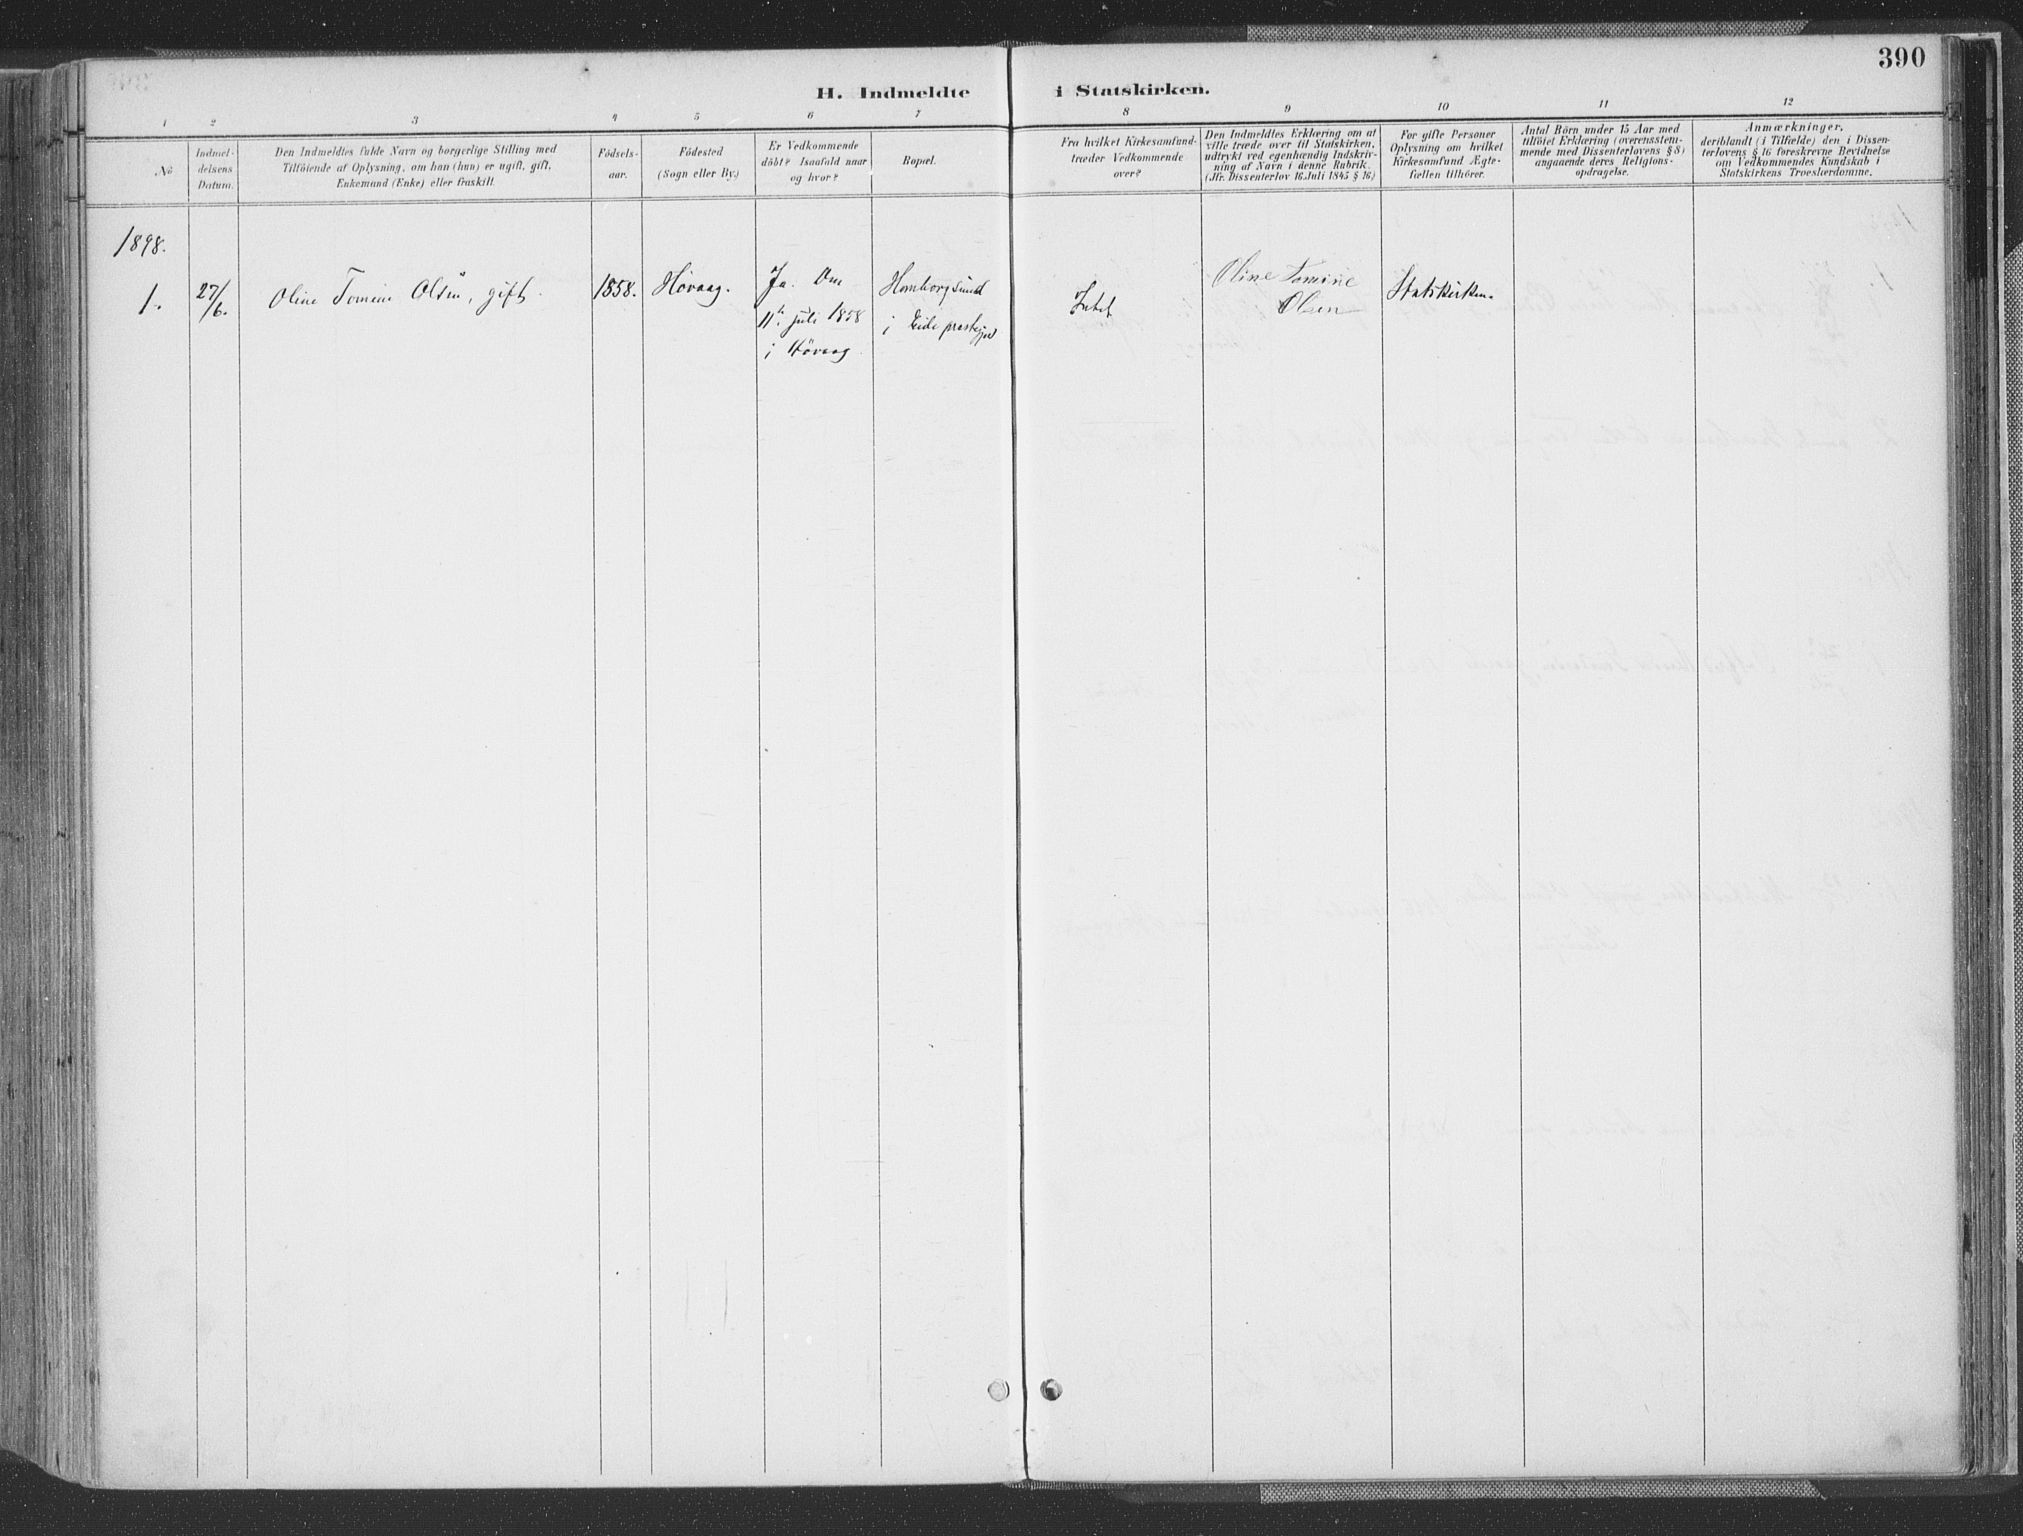 390
H. Indmeldte i Statskirken.
1 2 3 4 5 6 7 8 9 10 11 12
No
Indmel-
delsens
Datum.
Den Indmeldtes fulde Navn og borgerlige Stilling med
Tilföiende af Oplysning, om han (hun) er ugift, gift,
Enkemand (Enke) eller fraskilt.
Födsels-
aar.
Födested
(Sogn eller By.)
Er Vedkommende
döbt? Isaafald naar
og hvor?
Bopæl.
Fra hvilket Kirkesamfund
træder Vedkommende
over?
Den Indmeldtes Erklæring om at
ville træde over til Statskirken,
udtrykt ved egenhændig Indskriv-
ning af Navn i denne Rubrik.
(Jfr. Dissenterlov 16 Juli 1845 § 16)
For gifte Personer
Oplysning om hvilket
Kirkesamfund Ægte-
fællen tilhörer.
Antal Börn under 15 Aar med
tilföiet Erklæring (overensstem-
mende med Dissenterlovens § 8)
angaaende deres Religions-
opdragelse.
Anmærkninger,
deriblandt (i Tilfælde) den i Dissen-
terlovens § 16 foreskrevne Bevidnelse
om Vedkommendes Kundskab i
Statskirkens Troeslærdomme.
1898.
1.
27/6.
Oline Tomine Olsen, gift.
1858.
Høvaag.
Ja. Den
11te juli 1858
i Høvaag.
Homborgsund
i Eide prestegjed
Intet
Oline Tomine
Olsen
Statskirken.